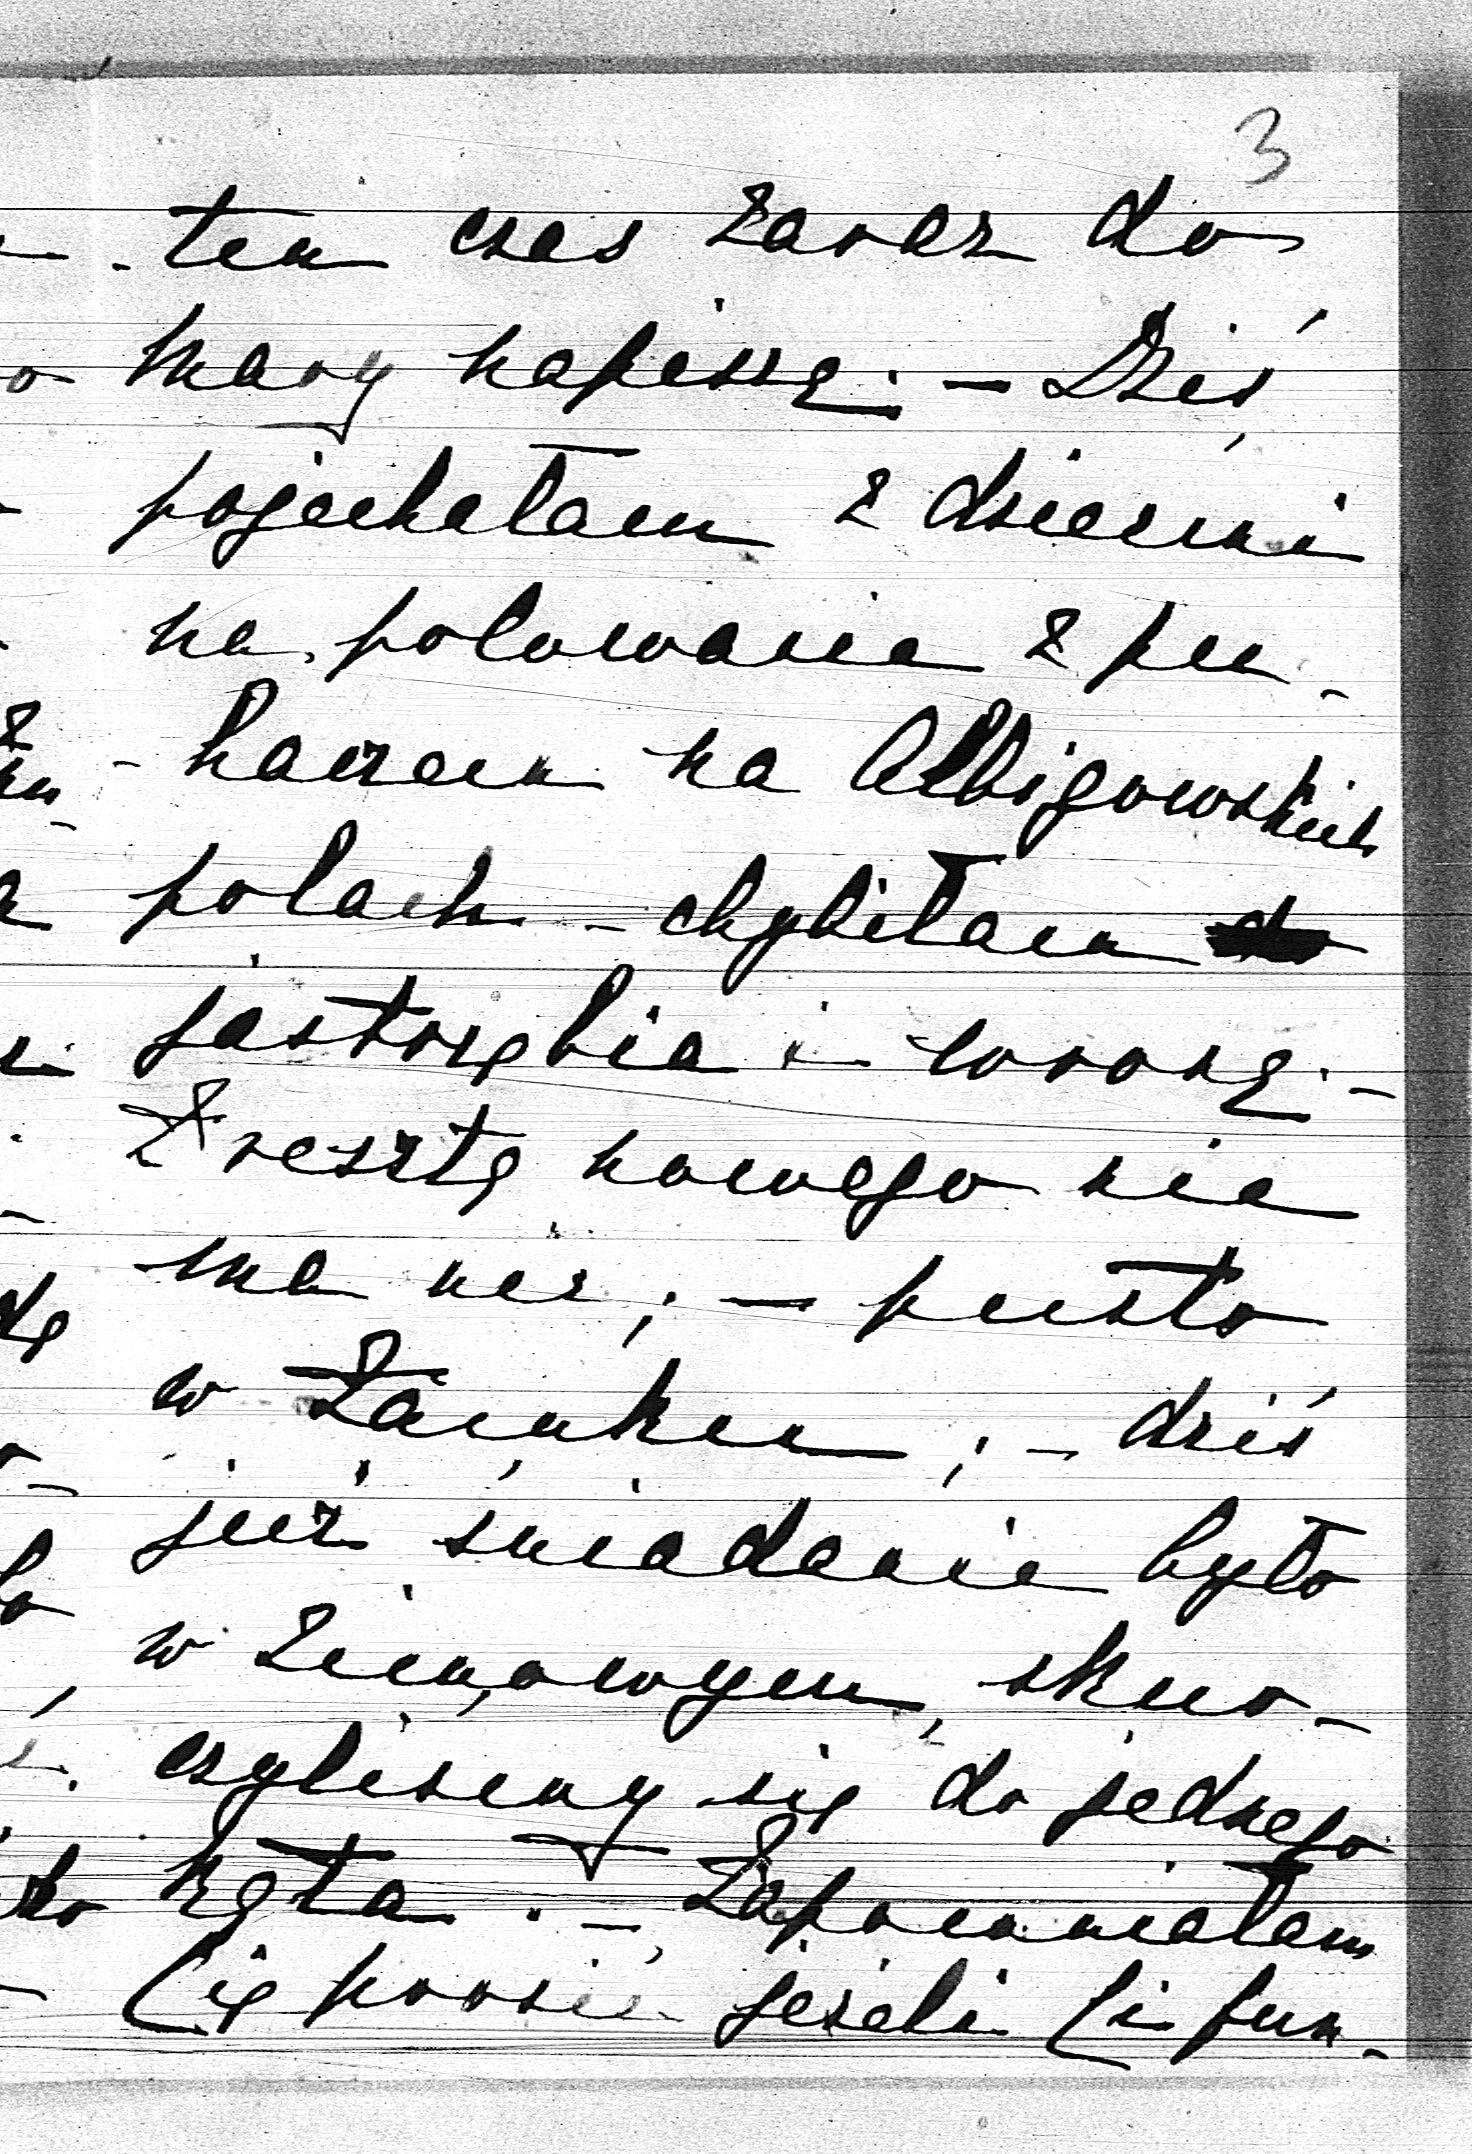 3
ten czas zaraz do
Mary napiszę. – Dziś
pojechałam z dziećmi
na polowanie z pu-
-haczem na Albigowskich
polach – chybiłam
jastrzębia i wronę. –
Zresztą nowego nie
ma nic; – pusto
w Zamku; – dziś
już śniadanie było
w zimowym, sku-
czyliśmy się do jednego
kąta. – Zapomniałam
Cię prosić jeżeli Ci fun-